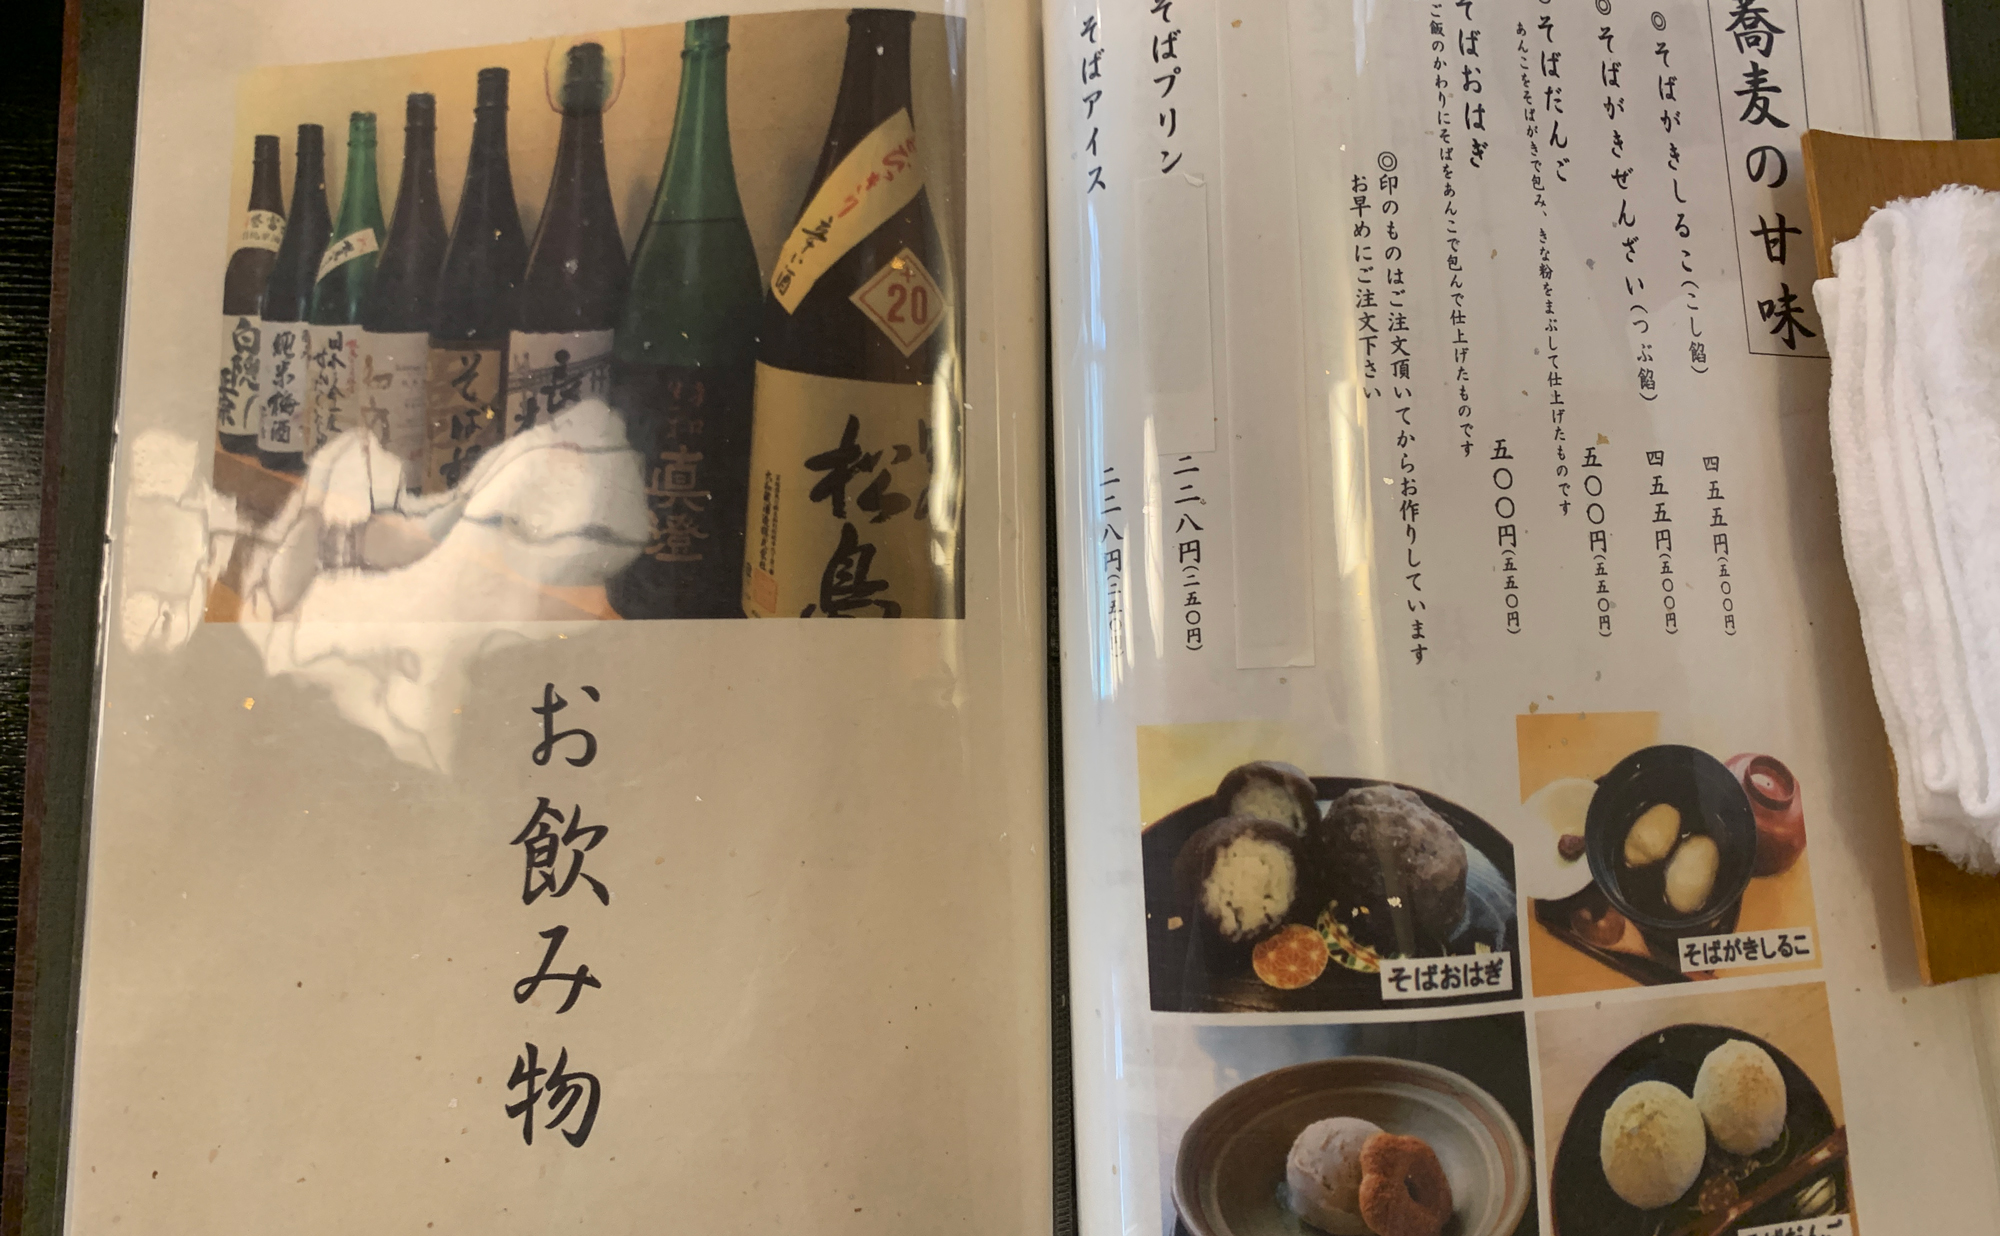 蕎麦の甘味
◎そばがきしるこ(こし餡) 四五五円(五〇〇円)
◎そばがきぜんざい(つぶ餡) 四五五円(五〇〇円)
◎そばだんご 五〇〇円(五五〇円)
あんこをそばがきで包み、きな粉をまぶして仕上げたものです
そばおはぎ 五〇〇円(五五〇円)
ご飯のかわりにそばをあんこで包んで仕上げたものです
◎印のものはご注文頂いてからお作りしています
お早めにご注文下さい
そばプリン 二二八円(二五〇円)
そばアイス 二二八円(二五〇円)
そばおはぎ
そばがきしるこ
そばだんご
辛い酒
20
松島
真澄
そば
純米梅酒
白隠
お飲み物